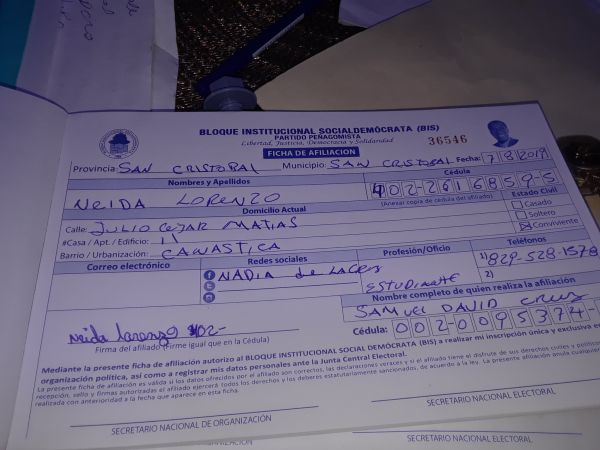 BLOQUE INSTITUCIONAL SOCIALDEMÓCRATA (BIS)
PARTIDO PEÑAGOMISTA
Libertad, Justicia, Democracia y Solidaridad
36546
FICHA DE AFILIACION
Provincia: SAN CRISTOBAL Municipio: SAN CRISTOBAL Fecha: 7/8/2019
Nombres y Apellidos
Cédula
NEIDA LORENZO
402-2616859-5
(Anexar copia de cedula del afiliado)
Domicilio Actual
Estado Civil
Calle: JULIO CEZAR MATIAS
Casado
#Casa / Apt. / Edificio: 11
Soltero
Barrio / Urbanización: CANASTICA
Conviviente
Correo electrónico
Redes sociales
Profesión/Oficio
Teléfonos
NADIA de LACES
ESTUDIANTE
1) 829-528-1578
2)
Nombre completo de quien realiza la afiliación
SAMUEL DAVID CRUZ
Neida Lorenzo
Cédula: 002-0095374-
Firma del afiliado (Firme igual que en la Cédula)
Mediante la presente ficha de afiliación autorizo al BLOQUE INSTITUCIONAL SOCIAL DEMÓCRATA (BIS) a realizar mi inscripción única y exclusiva en
organización política, así como a registrar mis datos personales ante la Junta Central Electoral.
La presente ficha de afiliación es valida si los datos ofrecidos por el afiliado son correctos, las declaraciones veraces y si el afiliado tiene el disfrute de sus derechos civiles y políticos
recepción, sello y firmas autorizadas el afiliado ejercerá todos los derechos y los deberes estatutariamente sancionados, de acuerdo a la ley. La presente afiliación anula cualquier
realizada con anterioridad a la fecha que aparece en esta ficha.
SECRETARIO NACIONAL DE ORGANIZACIÓN
SECRETARIO NACIONAL ELECTORAL
SECRETARIO NACIONAL ELECTORAL